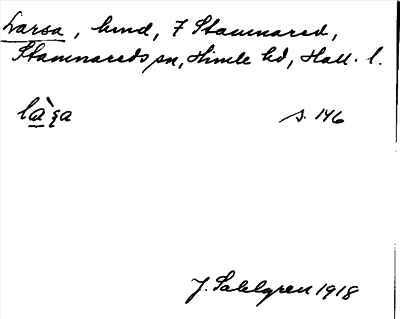 Larsa, hmd, 7 Stamnared,
Stamnareds sn, Himle hd, Hall. l.
là̱ʂa s. 146
J. Sahlgren 1918